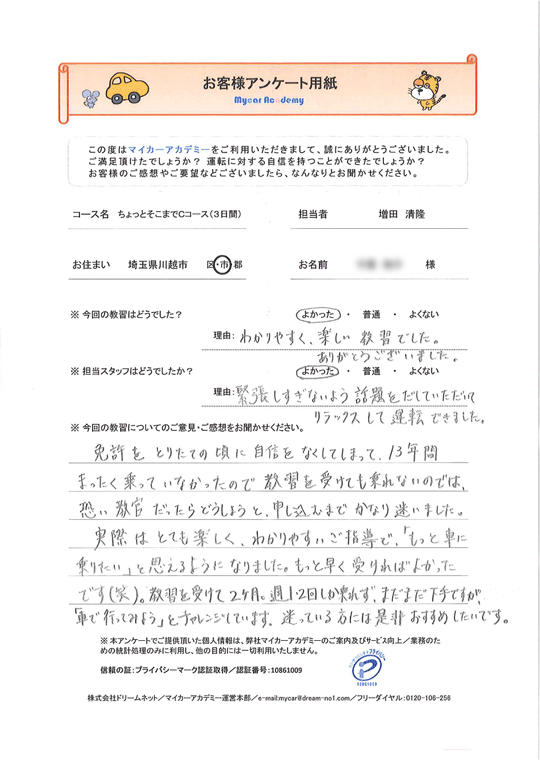 お客様アンケート用紙
Mycar Academy
この度はマイカーアカデミーをご利用いただきまして、誠にありがとうございました。
ご満足頂けたでしょうか？ 運転に対する自信を持つことができたでしょうか？
お客様のご感想やご要望などございましたら、なんなりとお聞かせください。
コース名 ちょっとそこまでCコース(3日間) 担当者 増田 清隆
お住まい 埼玉県川越市 区・市・郡 お名前 様
※ 今回の教習はどうでした？ よかった ・ 普通 ・ よくない
理由: わかりやすく、楽しい教習でした。
ありがとうございました。
※ 担当スタッフはどうでしたか？ よかった ・ 普通 ・ よくない
理由: 緊張しすぎないよう話題をだしていただいて
リラックスして運転できました。
※ 今回の教習についてのご意見・ご感想をお聞かせください。
免許をとりたての頃に自信をなくしてしまって、13年間
まったく乗っていなかったので教習を受けても乗れないのでは、
恐い教官だったらどうしようと、申し込みまでかなり迷いました。
実際はとても楽しく、わかりやすいご指導で、「もっと車に
乗りたい」と思えるようになりました。もっと早く受ければよかった
です(笑)。教習を受けて2ヶ月。週1・2回しか乗れず、まだまだ下手ですが、
「車で行ってみよう」とチャレンジしています。迷っている方には是非おすすめしたいです。
※ 本アンケートでご提供頂いた個人情報は、弊社マイカーアカデミーのご案内及びサービス向上／業務のた
めの統計処理のみに利用し、他の目的には一切利用いたしません。
信頼の証:プライバシーマーク認証取得／認証番号:10861009
10861009
株式会社ドリームネット／マイカーアカデミー運営本部／e-mail:mycar@dream-no1.com／フリーダイヤル:0120-106-256